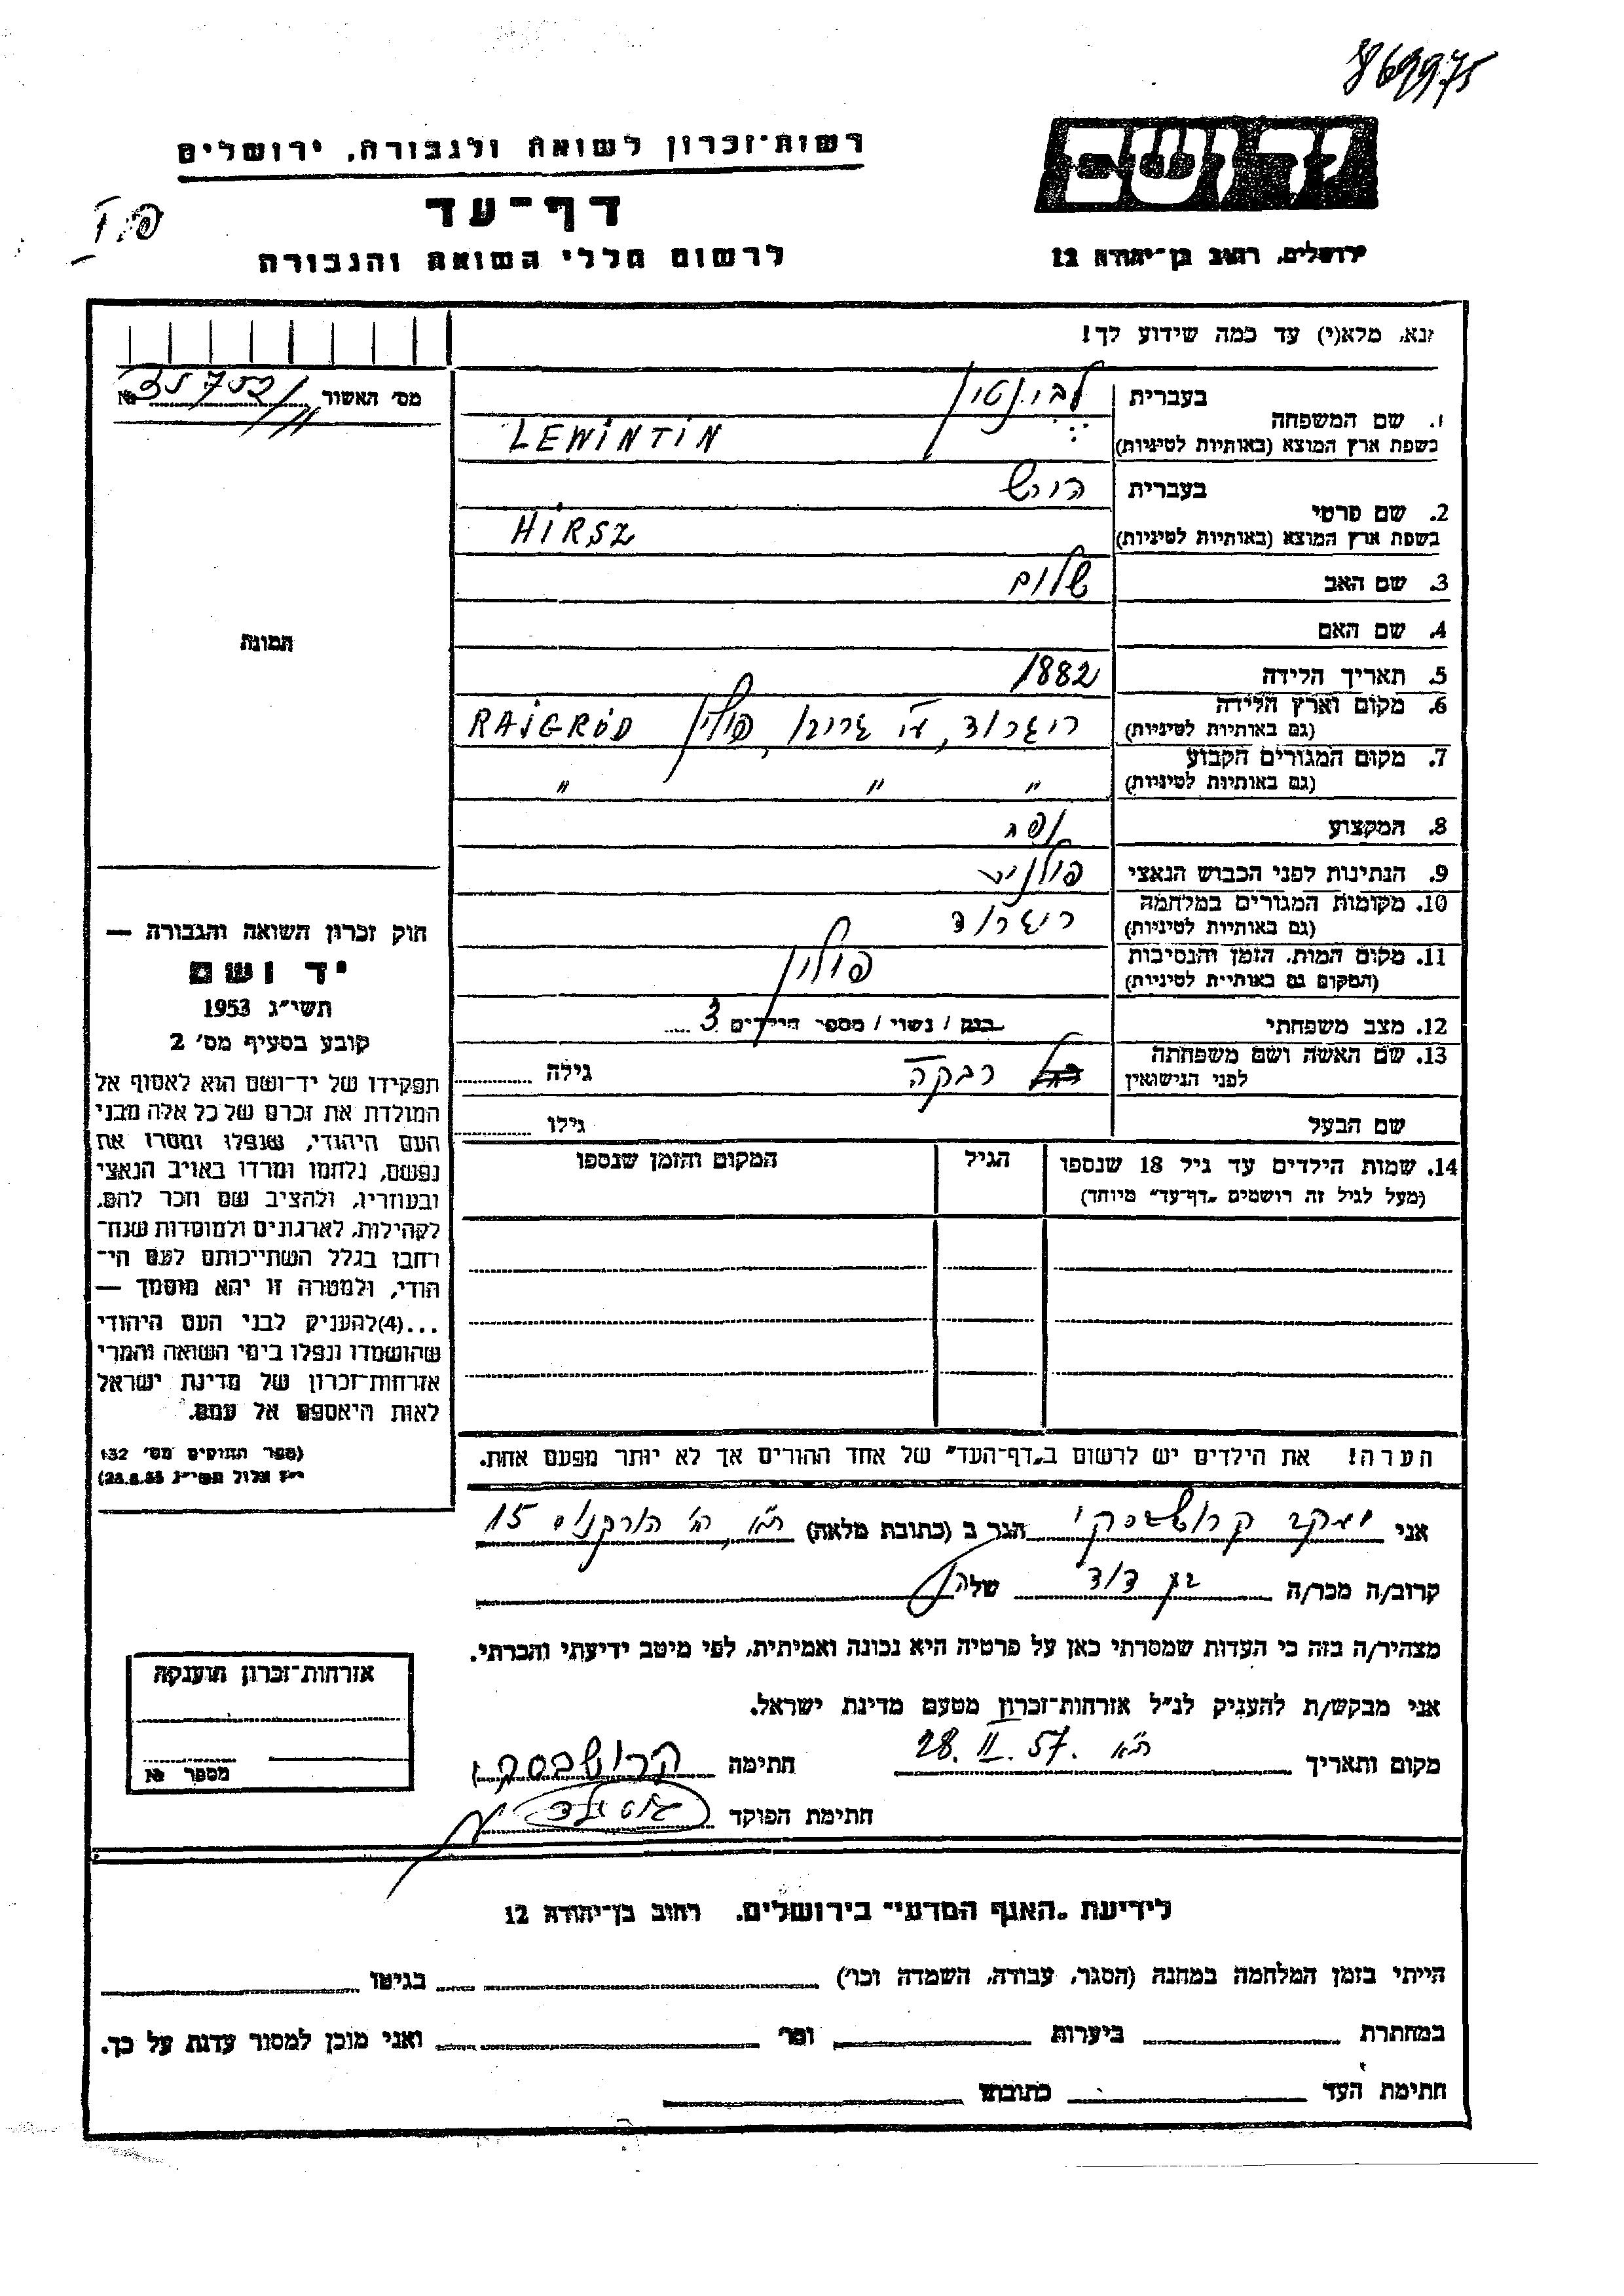 869975
רשות-זכרון לשואה ולגבורה, ירושלים
ידושם
דף-עד
לרשום חללי השואה והגבורה
ירושלים, רחוב בן-יהודה 12
נא, מלא(י) עד כמה שידוע לך!
מס' האשור № 35702
1. שם המשפחה
בעברית לבינטין
בשפת ארץ המוצא (באותיות לטיניות) LEWINTIN
2. שם פרטי
בעברית הירש
בשפת ארץ המוצא (באותיות לטיניות) HIRSZ
3. שם האב שלום
4. שם האם
תמונה
5. תאריך הלידה 1882
6. מקום וארץ הלידה (גם באותיות לטיניות) ריגרוד, פולין RAJGRÓD
7. מקום המגורים הקבוע (גם באותיות לטיניות) " " "
8. המקצוע
9. הנתינות לפני הכבוש הנאצי פולנית
10. מקומות המגורים במלחמה (גם באותיות לטיניות) ריגרוד
11. מקום המות, הזמן והנסיבות (המקום גם באותיות לטיניות) פולין
12. מצב משפחתי רווק / נשוי / מספר הילדים 3
13. שם האשה ושם משפחתה לפני הנישואין רבקה גילה
שם הבעל גילו
14. שמות הילדים עד גיל 18 שנספו
(מעל לגיל זה רושמים "דף-עד" מיוחד)
הגיל
המקום והזמן שנספו
חוק זכרון השואה והגבורה —
יד ושם
תשי"ג 1953
קובע בסעיף מס' 2
תפקידו של יד-ושם הוא לאסוף אל
המולדת את זכרם של כל אלה מבני
העם היהודי, שנפלו ומסרו את
נפשם, נלחמו ומרדו באויב הנאצי
ובעוזריו, ולהציב שם וזכר להם,
לקהילות, לארגונים ולמוסדות שנח-
רחבו בגלל השתייכותם לעם הי-
הודי, ולמטרה זו יהא מוסמך —
...(4)להעניק לבני העם היהודי
שהושמדו ונפלו בימי השואה והמרי
אזרחות-זכרון של מדינת ישראל
לאות היאספם אל עמם.
(ספר החוקים מס' 132
י"ז אלול תשי"ג 28.8.53)
הערה! את הילדים יש לרשום ב"דף-העד" של אחד ההורים אך לא יותר מפעם אחת.
אני יעקב קרושבסקי הגר ב (כתובת מלאה) ת"א, רח' הורקנוס 15
קרוב/ה מכר/ה בן דוד של
מצהיר/ה בזה כי העדות שמסרתי כאן על פרטיה היא נכונה ואמיתית, לפי מיטב ידיעתי והכרתי.
אני מבקש/ת להעניק לנ"ל אזרחות-זכרון מטעם מדינת ישראל.
מקום ותאריך ת"א 28. II. 57. חתימה קרושבסקי
חתימת הפוקד
אזרחות-זכרון הוענקה
מספר №
לידיעת "האגף המדעי" בירושלים. רחוב בן-יהודה 12
הייתי בזמן המלחמה במחנה (הסגר, עבודה, השמדה וכו') בגיטו
במחתרת ביערות וכו' ואני מוכן למסור עדות על כך.
חתימת העד כתובתו